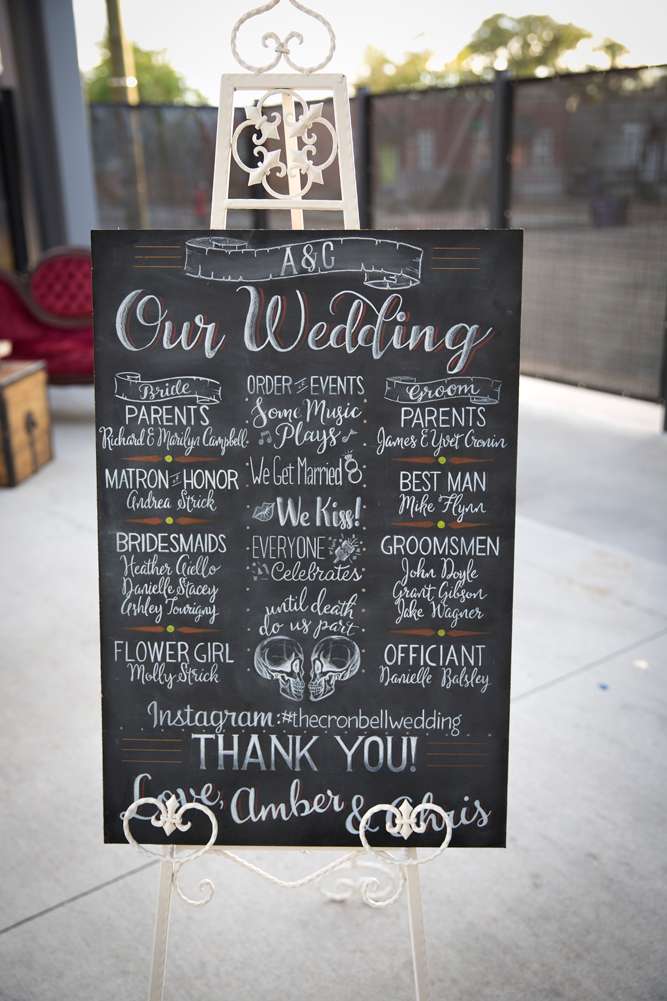 A & C
Our Wedding
Bride
PARENTS
Richard & Marilyn Campbell
MATRON OF HONOR
Andrea Strick
BRIDESMAIDS
Heather Aiello
Danielle Stacey
Ashley Tourigny
FLOWER GIRL
Molly Strick
ORDER OF EVENTS
Some Music
Plays
We Get Married
We Kiss!
EVERYONE
Celebrates
until death
do us part
Groom
PARENTS
James & Yvet Cronin
BEST MAN
Mike Flynn
GROOMSMEN
John Doyle
Grant Gibson
Jake Wagner
OFFICIANT
Danielle Balsley
Instagram: #thecronbellwedding
THANK YOU!
Love, Amber & Chris